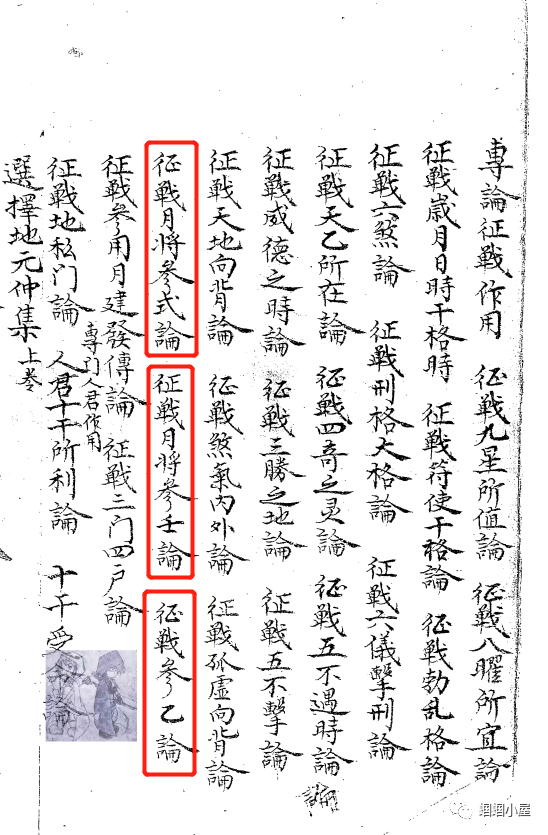 專論征戰作用 征戰九星所值論 征戰八曜所宜論
征戰歲月日時干格時 征戰符使干格論 征戰勃乱格論
征戰六煞論 征戰刑格大格論 征戰六儀擊刑論
征戰天乙所在論 征戰四奇之灵論 征戰五不遇時論
征戰威德之時論 征戰三勝之地論 征戰五不擊論
征戰天地向背論 征戰煞氣內外論 征戰孤虛向背論
征戰月將參式論 征戰月將參壬論 征戰參乙論
征戰參用月建發傳論 征戰三门四户論
征戰地私门論 專门人君作用 人君十干所利論 十干受命論
選擇地元仲集上卷
蝈蝈小屋